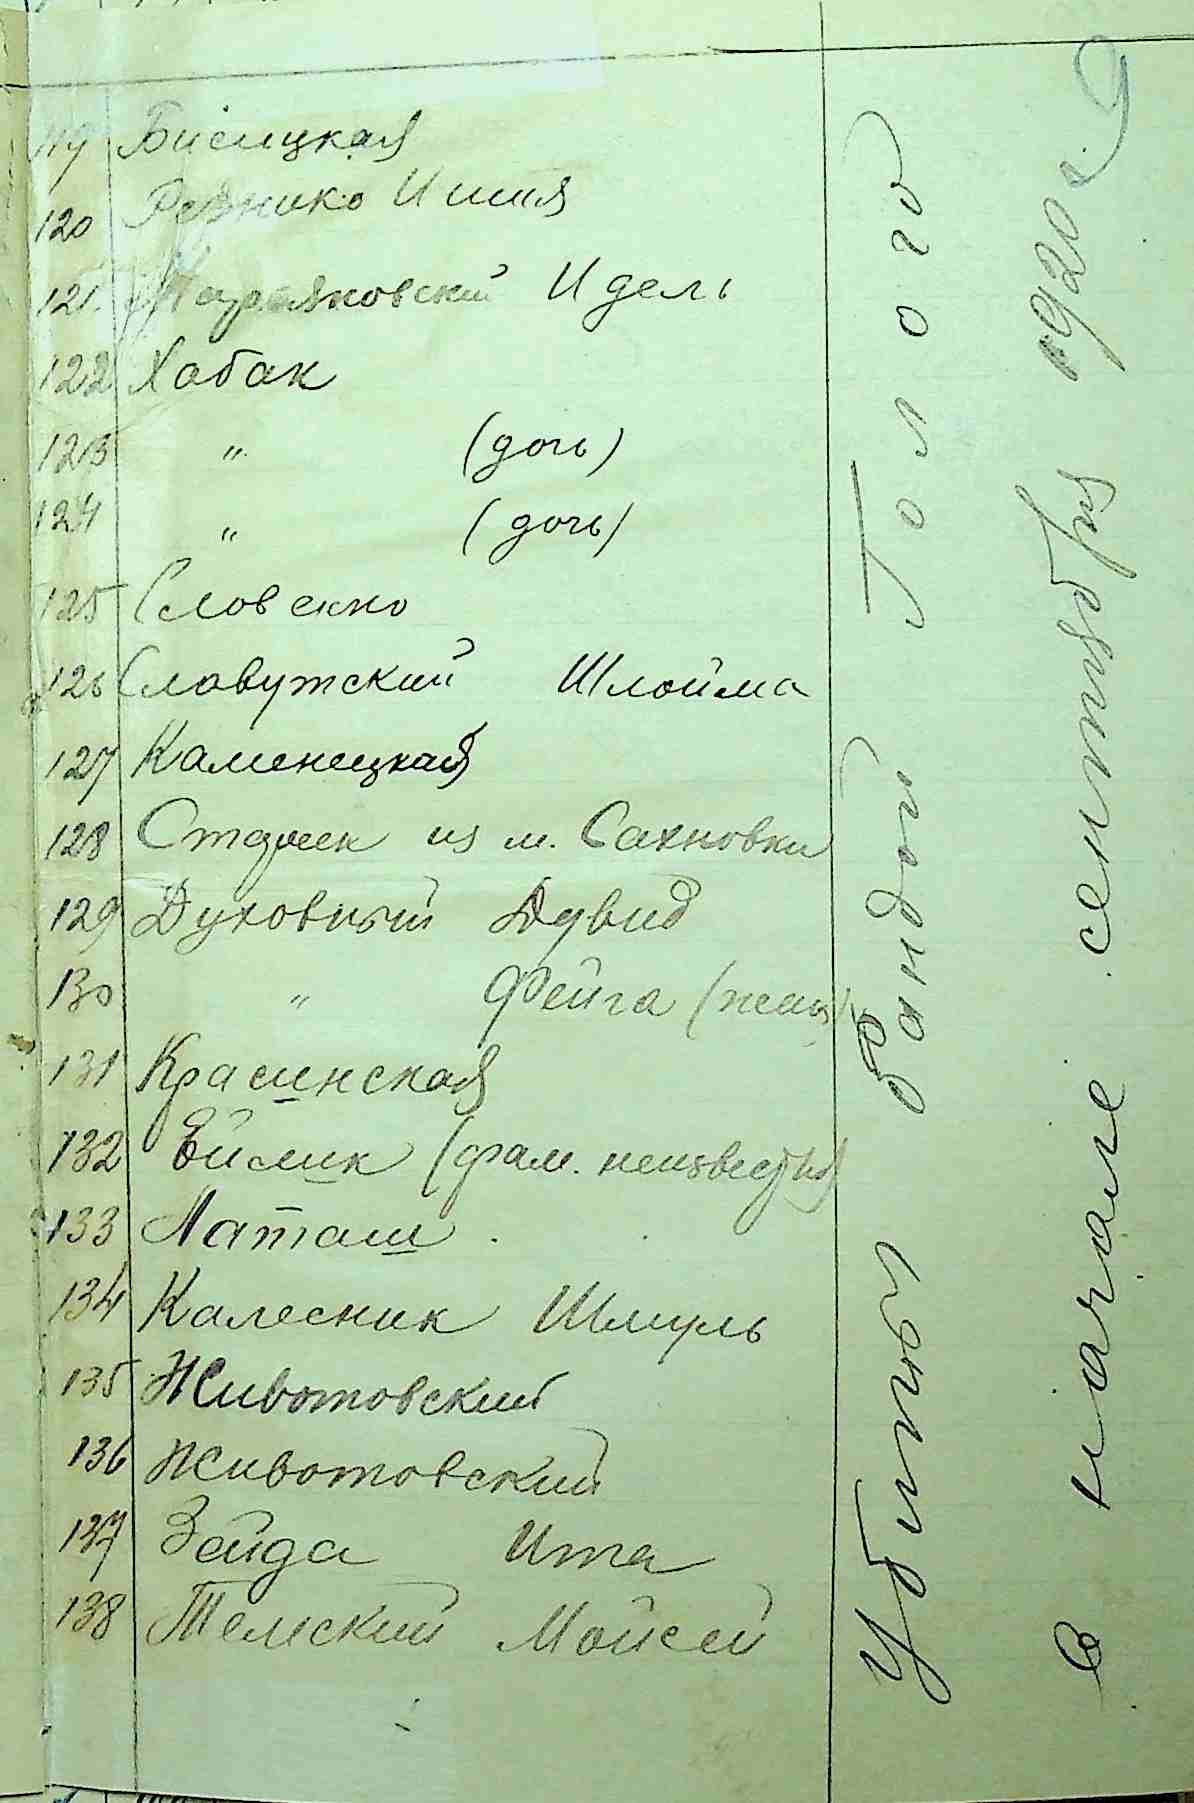 119
120 Резнико
121. Идель
122 Хабак
123 " (дочь)
124 " (дочь)
125 Словенко
126 Славутский Шлойма
127 Каменецкая
128 Старик из м. Сахновки
129 Духовный Дувид
130 " Фейга (жена)
131 Красинская
132 Ейлик (фам. неизвестна)
133 Латаш
134 Калесник Шмуль
135 Животовский
136 Животовский
137 Зейда Ита
138 Темский Мойсей
Убиты бандой Голого
в начале сентября 1920 г.